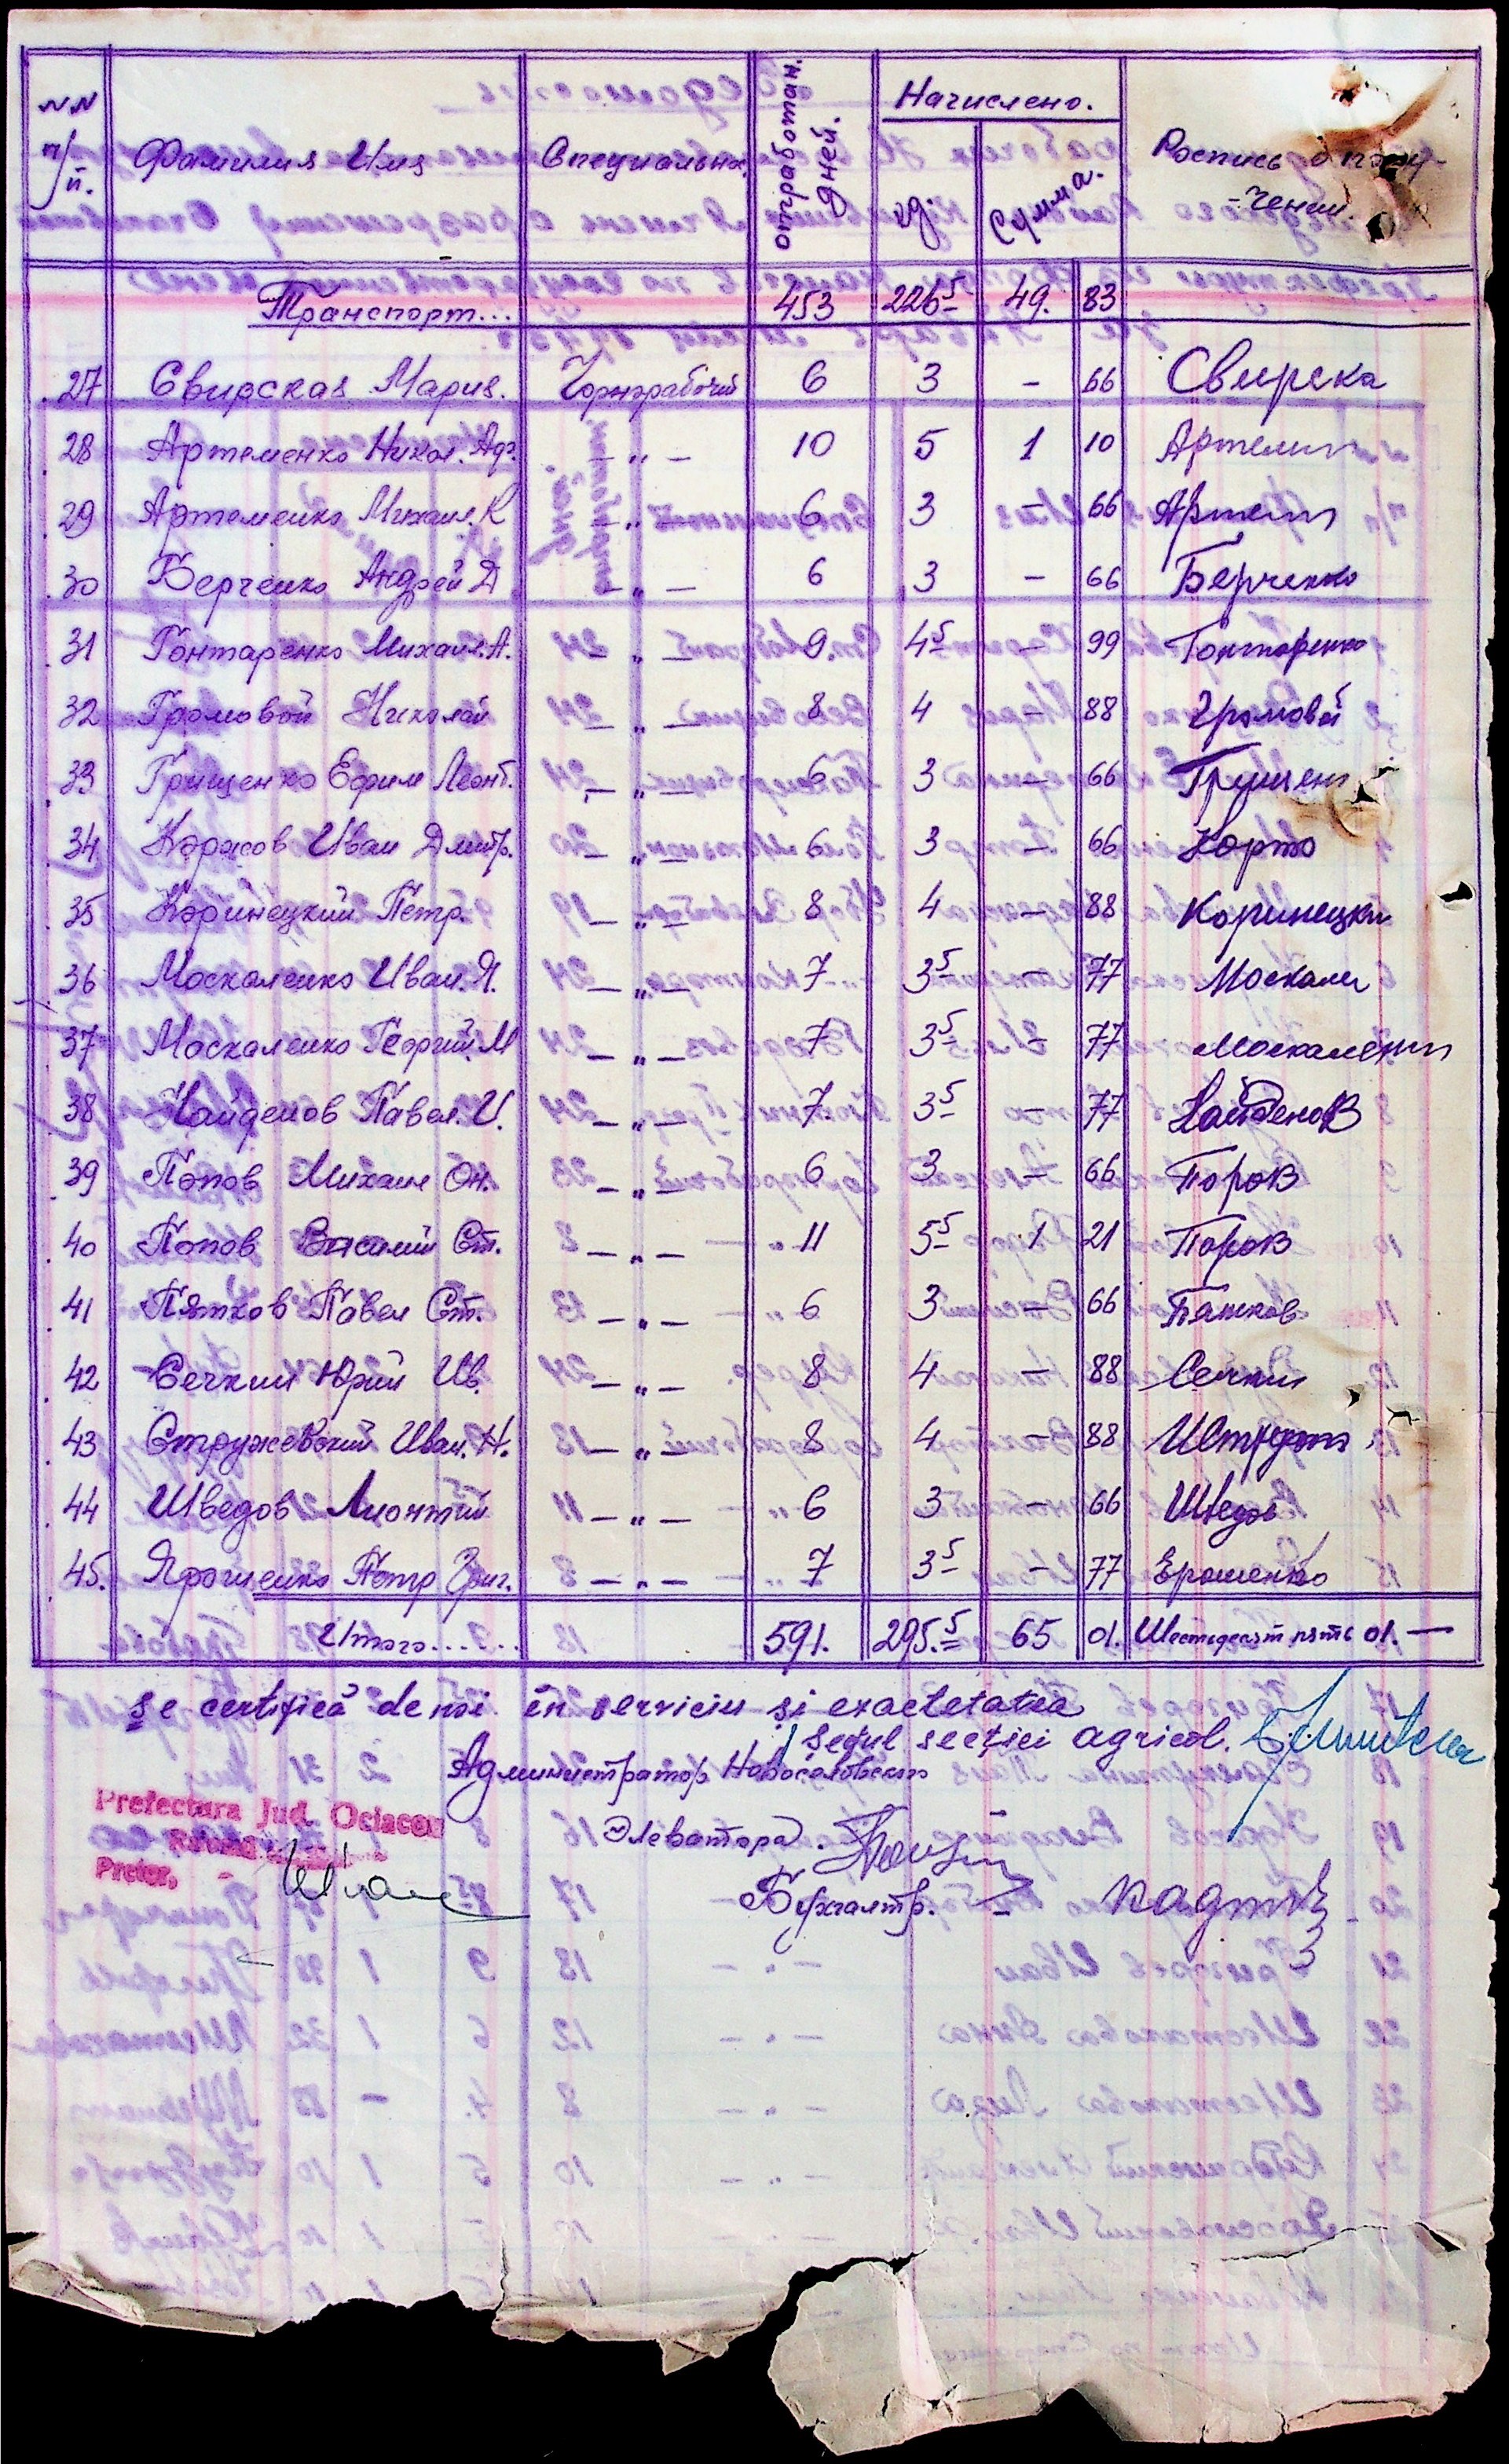 NN п/п. Фамилия Имя Специальн. отработан. дней. Начислено. кд. Сумма. Роспись о получении.
Транспорт... 453 226⁵ 49. 83
27 Свирская Мария. Чернорабочий 6 3 - 66 Свирска
28 Артеменко Никол. — " — 10 5 1 10
29 Артеменко Михаил. К — " — 6 3 - 66
30 Берченко Андрей Д — " — 6 3 - 66 Берченко
31 Гонтаренко Михаил. А. — " — 9. 4⁵ - 99 Гонтаренко
32 Громовой Николай — " — 8 4 - 88 Громовой
33 Грищенко Ефим Леонт. — " — 6 3 - 66
34 Иван Дмитр. — " — 6 3 - 66
35 Коринецкий Петр. — " — 8 4 - 88 Коринецки
36 Москаленко Иван. Я. — " — 7 3⁵ - 77 Москален
37 Москаленко Георгий. М — " — 7 3⁵ - 77
38 Найденов Павел. И. — " — 7. 3⁵ - 77 Найденов
39 Попов Михаил Он. — " — 6 3 - 66 Попов
40 Попов Василий Ст. — " — 11 5⁵ 1 21 Попов
41 Пятков Павел Ст. — " — 6 3 - 66 Пятков
42 Сечкин Юрий Ив. — " — 8 4 - 88 Сечкин
43 Стружевский Иван. Н. — " — 8 4 - 88
44 Шведов Лионтий — " — 6 3 - 66 Шведов
45. Ярошенко Петр Григ. — " — 7 3⁵ - 77 Ерошенко
Итого...... 591. 295.⁵ 65 01. Шестьдесят пять 01. —
se certifică de noi în serviciu și exactetatea
Șeful secției agricol.
Администратор Новоселовского
Элеватора.
Prefectura Jud. Ociacov
Pretor,
Бухгалтр. -